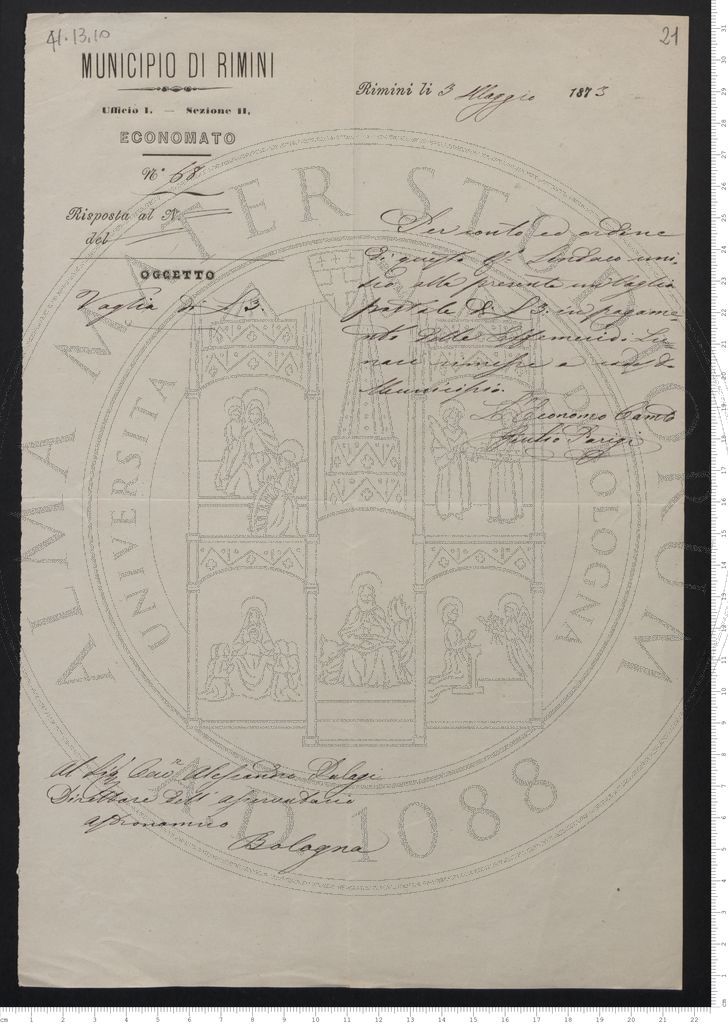 41.13.10
21
MUNICIPIO DI RIMINI
Ufficio I. — Sezione II,
ECONOMATO
N.º 68
Risposta al N.
del
OGGETTO
Vaglia di L 3.
Rimini li 3 Maggio 1873
Per conto ed ordine
di questo Sindaco uni-
sco alla presente un Vaglia
postale di L 3. in pagame-
nto delle Effemeridi Lu-
nari rimesse a
Municipio.
L'Economo Camle
Giulio Parigi
Al Sig. Alessandro Palagi
Direttore dell'
Bologna
ALMA MATER STUDIORUM
UNIVERSITA BOLOGNA
A.D. 1088